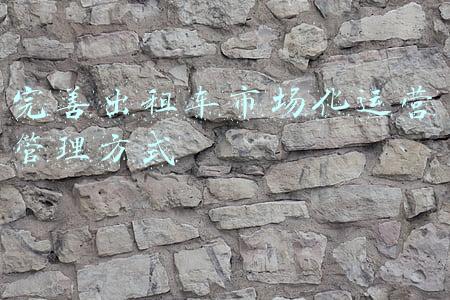 完善出租车市场化运营
管理方式